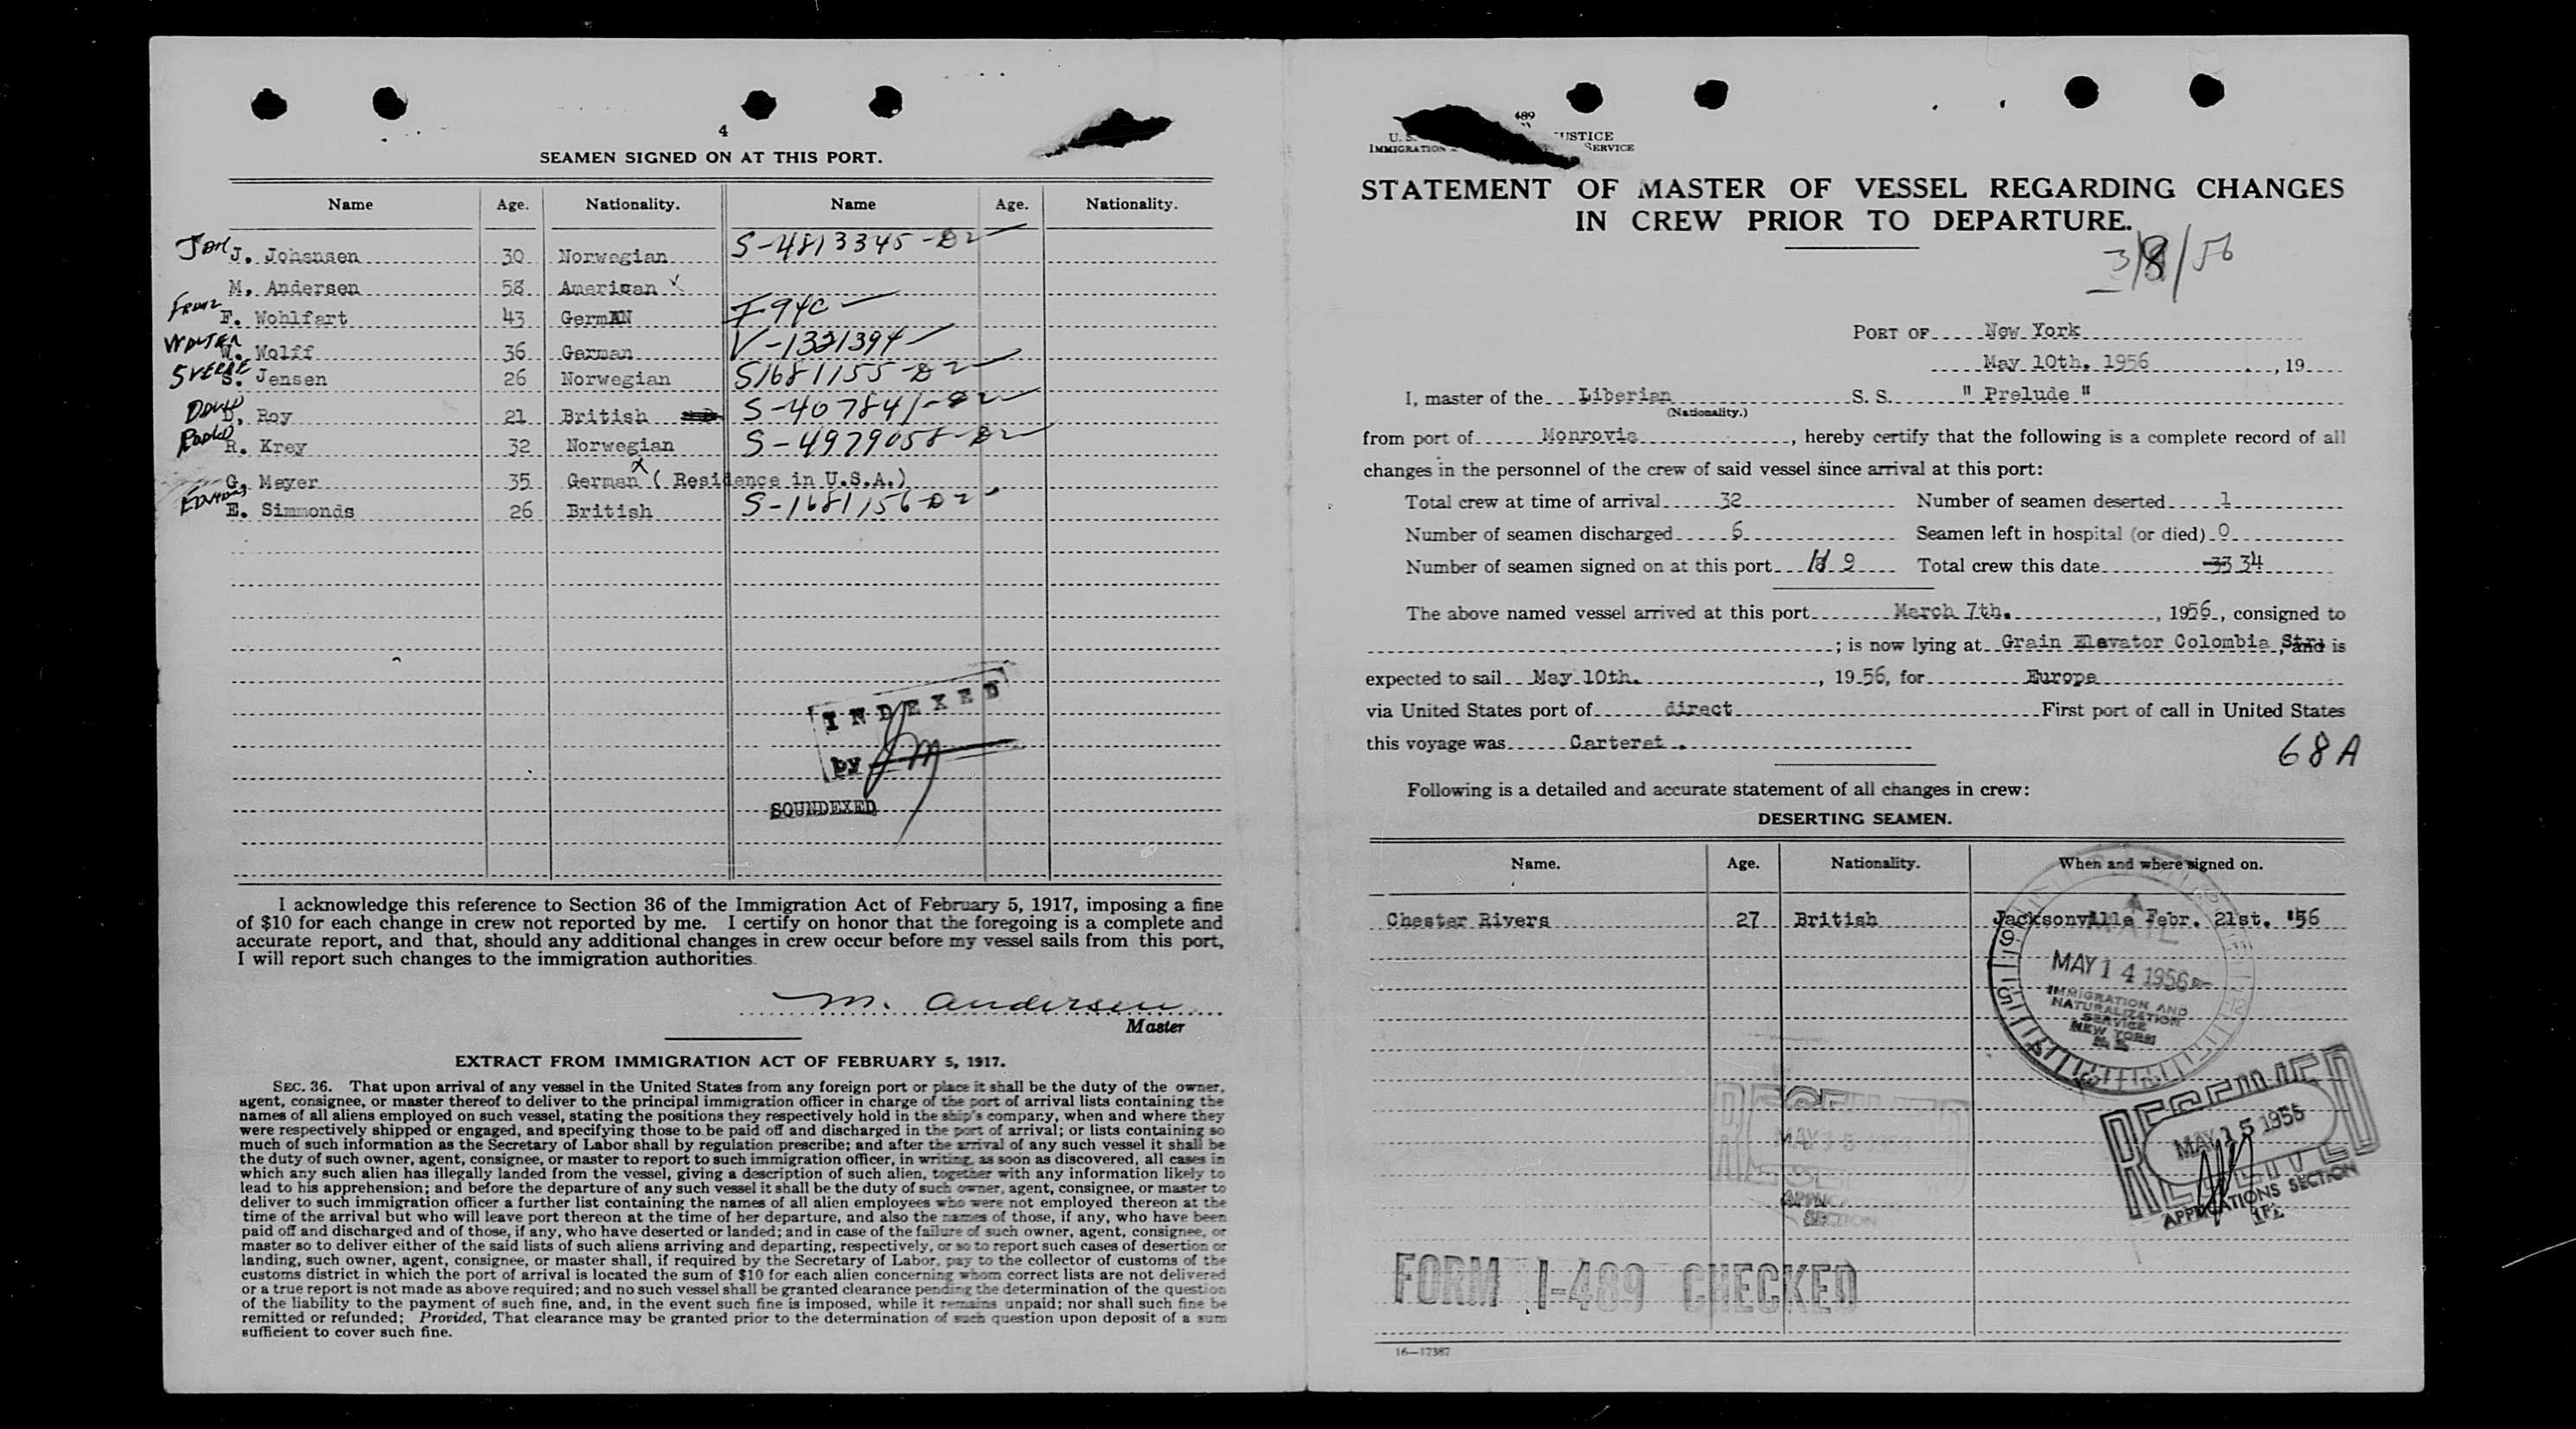 4
SEAMEN SIGNED ON AT THIS PORT.
Name Age. Nationality. Name Age. Nationality.
J. Johansen 30 Norwegian S-4813345-D2
M. Andersen 58 American
Franz F. Wohlfart 43 GermAN
Walter W. Wolff 36 German V-1321394
Sverre S. Jensen 26 Norwegian S1681155-D2
David D. Roy 21 British S-407841-D2
R. Krey 32 Norwegian S-4979058-D2
G. Meyer 35 German x ( Residence in U.S.A.)
E. Simmonds 26 British S-1681156-D2
INDEXED
by
SOUNDEXED
I acknowledge this reference to Section 36 of the Immigration Act of February 5, 1917, imposing a fine
of $10 for each change in crew not reported by me. I certify on honor that the foregoing is a complete and
accurate report, and that, should any additional changes in crew occur before my vessel sails from this port,
I will report such changes to the immigration authorities.
M. Andersen
Master
EXTRACT FROM IMMIGRATION ACT OF FEBRUARY 5, 1917.
SEC. 36. That upon arrival of any vessel in the United States from any foreign port or place it shall be the duty of the owner,
agent, consignee, or master thereof to deliver to the principal immigration officer in charge of the port of arrival lists containing the
names of all aliens employed on such vessel, stating the positions they respectively hold in the ship's company, when and where they
were respectively shipped or engaged, and specifying those to be paid off and discharged in the port of arrival; or lists containing so
much of such information as the Secretary of Labor shall by regulation prescribe; and after the arrival of any such vessel it shall be
the duty of such owner, agent, consignee, or master to report to such immigration officer, in writing, as soon as discovered, all cases in
which any such alien has illegally landed from the vessel, giving a description of such alien, together with any information likely to
lead to his apprehension; and before the departure of any such vessel it shall be the duty of such owner, agent, consignee, or master to
deliver to such immigration officer a further list containing the names of all alien employees who were not employed thereon at the
time of the arrival but who will leave port thereon at the time of her departure, and also the names of those, if any, who have been
paid off and discharged and of those, if any, who have deserted or landed; and in case of the failure of such owner, agent, consignee, or
master so to deliver either of the said lists of such aliens arriving and departing, respectively, or so to report such cases of desertion or
landing, such owner, agent, consignee, or master shall, if required by the Secretary of Labor, pay to the collector of customs of the
customs district in which the port of arrival is located the sum of $10 for each alien concerning whom correct lists are not delivered
or a true report is not made as above required; and no such vessel shall be granted clearance pending the determination of the question
of the liability to the payment of such fine, and, in the event such fine is imposed, while it remains unpaid; nor shall such fine be
remitted or refunded; Provided, That clearance may be granted prior to the determination of such question upon deposit of a sum
sufficient to cover such fine.
489
U. S. USTICE
IMMIGRATION SERVICE
STATEMENT OF MASTER OF VESSEL REGARDING CHANGES
IN CREW PRIOR TO DEPARTURE.
3/8/56
PORT OF New York
May 10th. 1956, 19
I, master of the Liberian S. S. " Prelude "
(Nationality.)
from port of Monrovia, hereby certify that the following is a complete record of all
changes in the personnel of the crew of said vessel since arrival at this port:
Total crew at time of arrival 32 Number of seamen deserted 1
Number of seamen discharged 6 Seamen left in hospital (or died) 0
Number of seamen signed on at this port 9 Total crew this date 33 34
The above named vessel arrived at this port March 7th., 1956, consigned to
; is now lying at Grain Elevator Colombia Str, and is
expected to sail May 10th., 1956, for Europe
via United States port of direct First port of call in United States
this voyage was Carteret.
68A
Following is a detailed and accurate statement of all changes in crew:
DESERTING SEAMEN.
Name. Age. Nationality. When and where signed on.
Chester Rivers 27 British Jacksonville Febr. 21st. '56
MAIL
MAY 14 1956
IMMIGRATION AND
NATURALIZATION
SERVICE
NEW YORK
N. Y.
RECEIVED
MAY 15 1956
APPLICATIONS SECTION
RECEIVED
MAY 15
SECTION
FORM I-489 CHECKED
16—17387